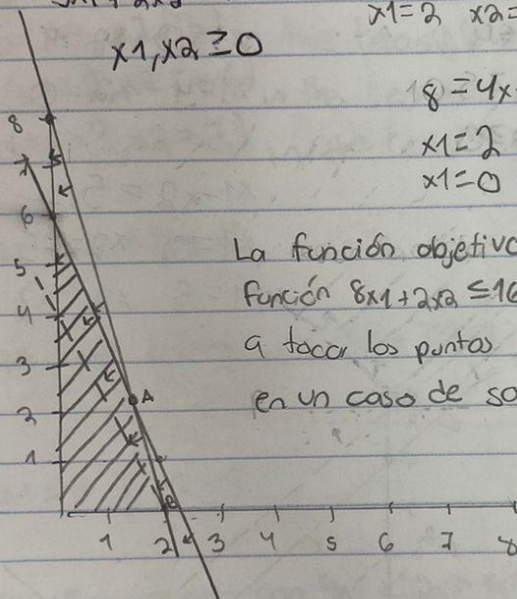 x1=2 x2=
x1,x2 ≥0
8 =4x
x1=2
x1=0
8
7
6
La función objetivo
5
función 8x1+2x2 ≤16
4
a tocar los puntos
3
A
2
en un caso de so
1
1 2 3 4 5 6 7 8